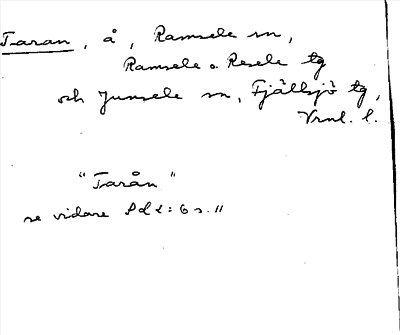 Taran, å, Ramsele sn,
Ramsele o. Resele tg
och Junsele sn, Fjällsjö tg,
Vrnl. l.
"Tarån"
se vidare Sd 2:6 s. 11